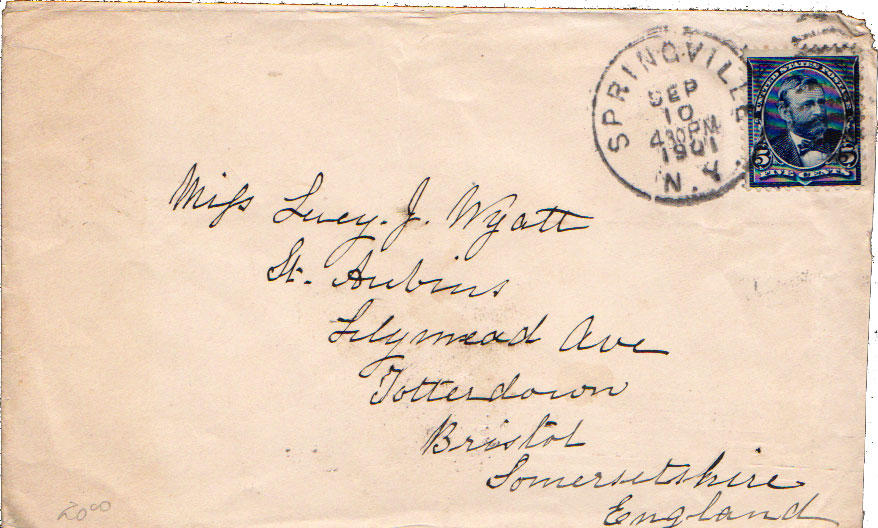 SPRINGVILLE
SEP
10
430PM
1901
N.Y.
UNITED STATES POSTAGE
5 5
FIVE CENTS
Miss Lucy. J. Wyatt
St. Aubins
Lilymead Ave
Totterdown
Bristol
Somersetshire
England
2000